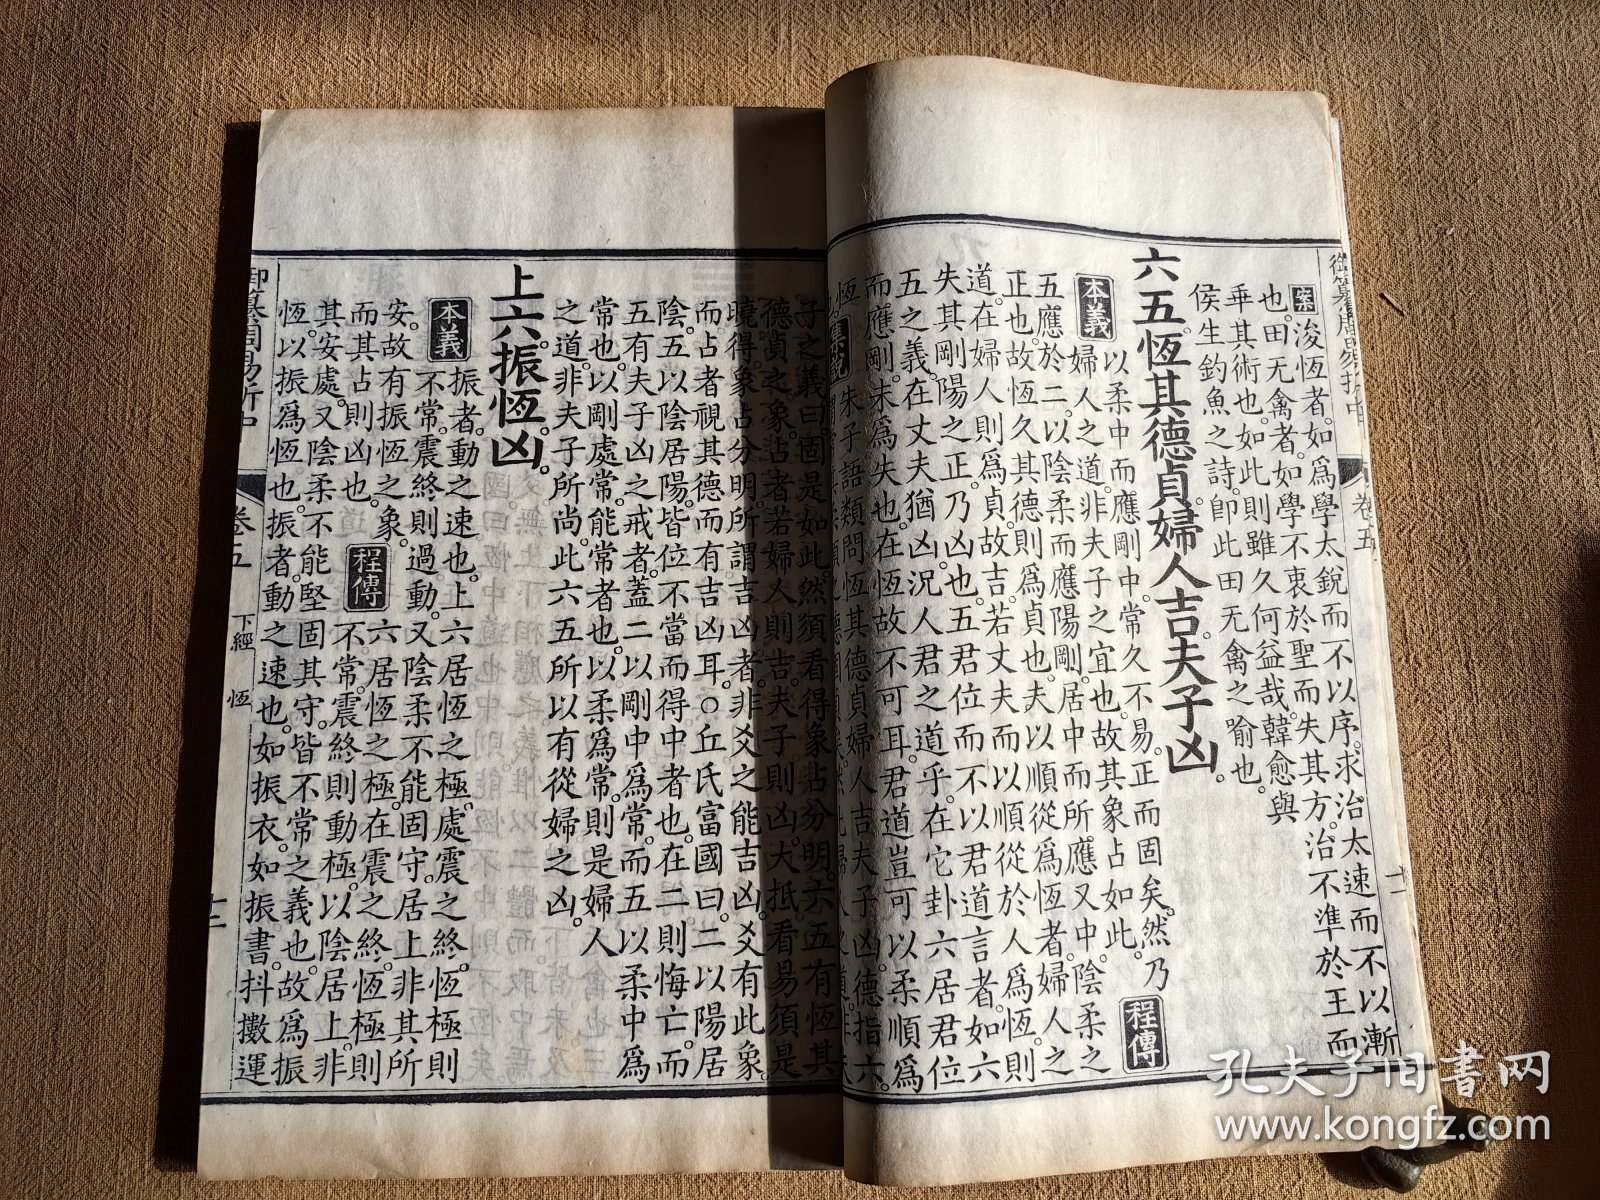 御纂周易折中 卷五 十一
案 浚恆者。如爲學太銳而不以序。求治太速而不以漸
也。田无禽者。如學不衷於聖而失其方。治不準於王而
乖其術也。如此則雖久何益哉。韓愈與
侯生釣魚之詩。卽此田无禽之喻也。
六五恆其德貞婦人吉夫子凶。
本義 以柔中而應剛中。常久不易。正而固矣。然乃
婦人之道。非夫子之宜也。故其象占如此。 程傳
五應於二。以陰柔而應陽剛。居中而所應又中。陰柔之
正也。故恆久其德則爲貞也。夫以順從爲恆者。婦人之
道。在婦人則爲貞。故吉。若丈夫而以順從於人爲恆。則
失其剛陽之正。乃凶也。五君位而不以君道言者。如六
五之義。在丈夫猶凶。況人君之道乎。在它卦六居君位
而應剛。未爲失也。在恆故不可耳。君道豈可以柔順爲
恆 集說 朱子語類問恆其德貞婦人吉夫子凶。德指六
子之義曰。固是如此。然須看得象占分明。六五有恆其
德貞之象。占者若婦人則吉。夫子則凶。大抵看易須是
曉得象占分明。所謂吉凶者。非爻之能吉凶。爻有此象。
而占者視其德而有吉凶耳。○丘氏富國曰。二以陽居
陰。五以陰居陽。皆位不當而得中者也。在二則悔亡。而
五有夫子凶之戒者。蓋二以剛中爲常。而五以柔中爲
常也。以剛處常。能常者也。以柔爲常。則是婦人
之道。非夫子所尚。此六五所以有從婦之凶。
上六振恆凶。
本義 振者。動之速也。上六居恆之極。處震之終。恆極則
不常。震終則過動。又陰柔不能固守。居上非其所
安。故有振恆之象。 程傳 六居恆之極。在震之終。恆極則
而其占則凶也。 不常。震終則動極。以陰居上。非
其安處。又陰柔不能堅固其守。皆不常之義也。故爲振
恆。以振爲恆也。振者。動之速也。如振衣。如振書。抖擻運
御纂周易折中 卷五 下經 恆 十二
孔夫子旧书网
www.kongfz.com